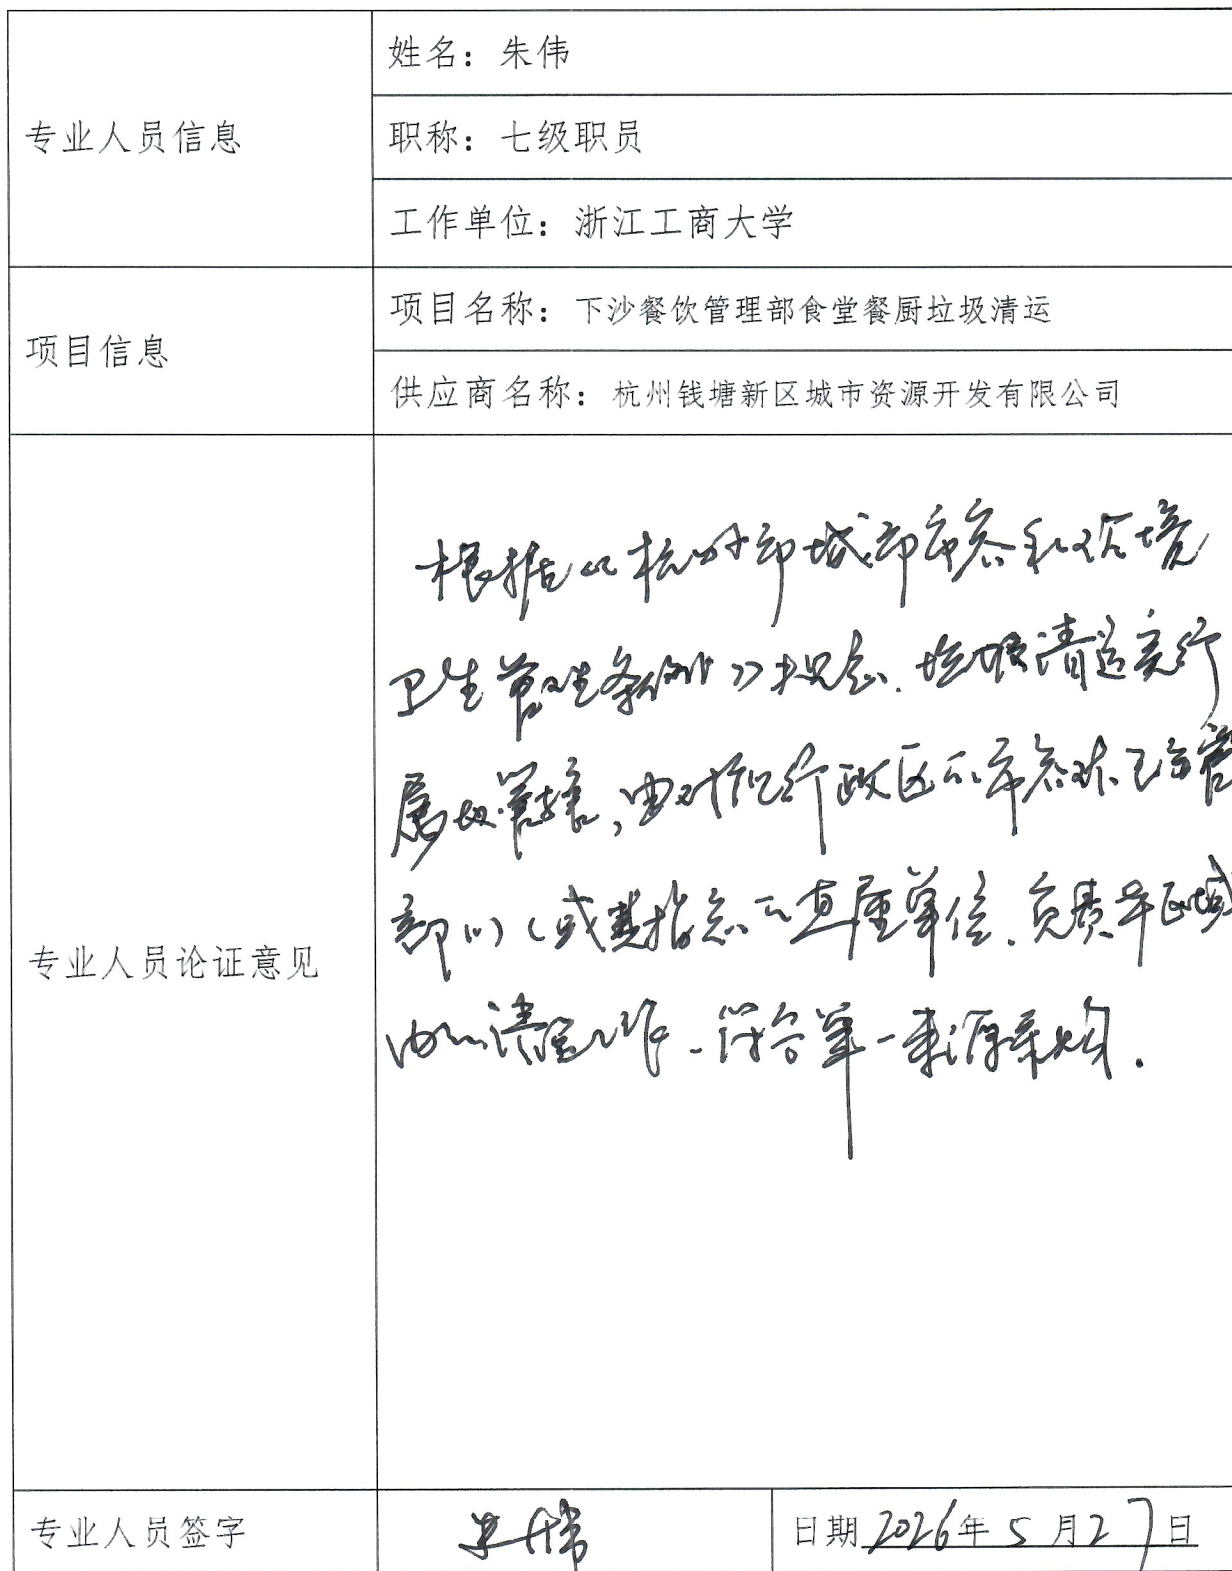 专业人员信息
姓名：朱伟
职称：七级职员
工作单位：浙江工商大学
项目信息
项目名称：下沙餐饮管理部食堂餐厨垃圾清运
供应商名称：杭州钱塘新区城市资源开发有限公司
专业人员论证意见
根据《杭州市城市市容和环境
卫生管理条例》规定，垃圾清运实行
属地管辖，由对应行政区的市容环卫管
部门（或其指定的直属单位，负责辖区域
内的清运工作，符合单一来源采购．
专业人员签字
朱伟
日期 2026年 5 月 27 日